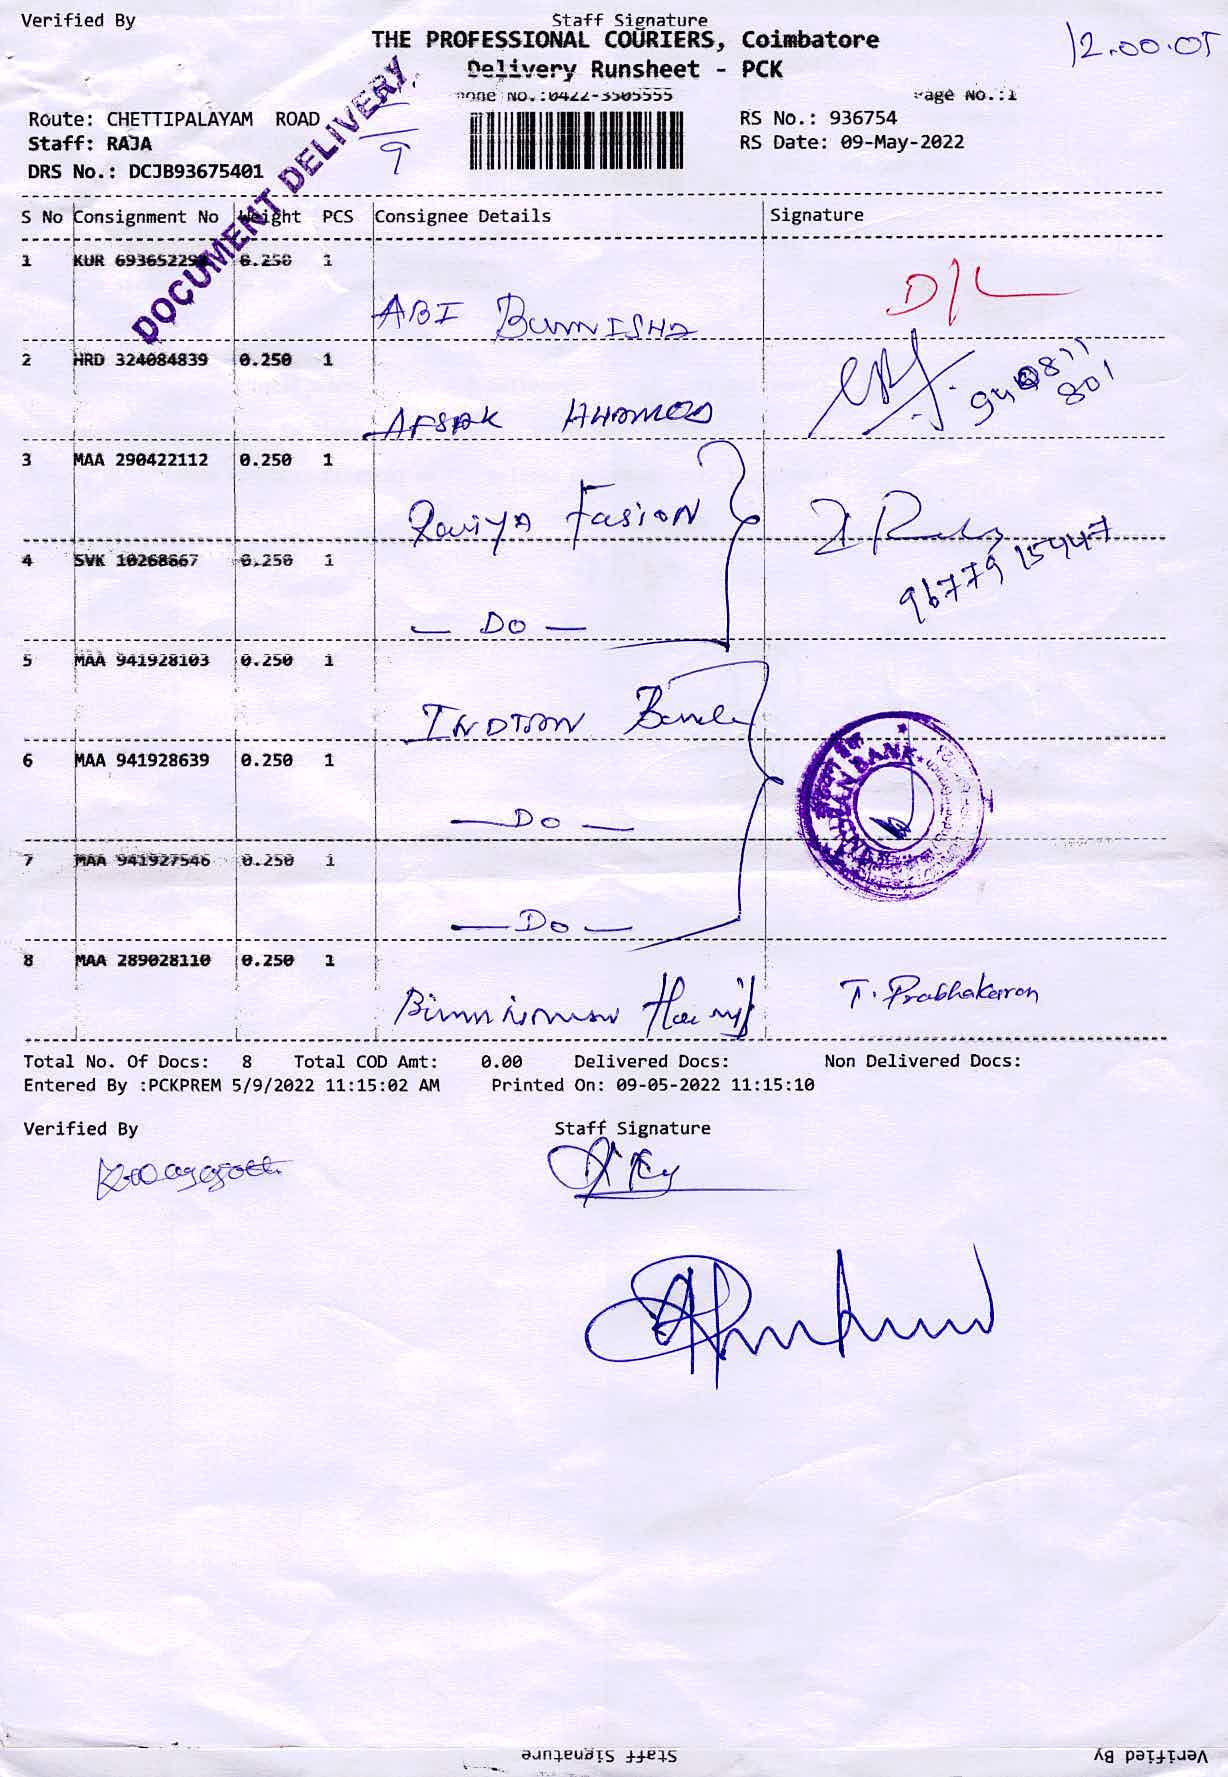 Verified By Staff Signature
THE PROFESSIONAL COURIERS, Coimbatore
12.00.05
Delivery Runsheet - PCK
Phone No.:0422-3505555 Page No.:1
Route: CHETTIPALAYAM ROAD RS No.: 936754
Staff: RAJA RS Date: 09-May-2022
9
DRS No.: DCJB93675401
DOCUMENT DELIVERY
S No Consignment No Weight PCS Consignee Details Signature
1 KUR 69365229 0.250 1
ABI Bumnisha D/L
2 HRD 324084839 0.250 1
801
AFSAK AHAMED
3 MAA 290422112 0.250 1
Fasion
4 SVK 10268667 0.250 1
96779 15447
— Do —
5 MAA 941928103 0.250 1
INDIAN Bank
6 MAA 941928639 0.250 1
INDIAN BANK
— Do —
7 MAA 941927546 0.250 1
— Do —
8 MAA 289028110 0.250 1
T. Prabhakaran
Total No. Of Docs: 8 Total COD Amt: 0.00 Delivered Docs: Non Delivered Docs:
Entered By :PCKPREM 5/9/2022 11:15:02 AM Printed On: 09-05-2022 11:15:10
Verified By Staff Signature
Staff Signature Verified By